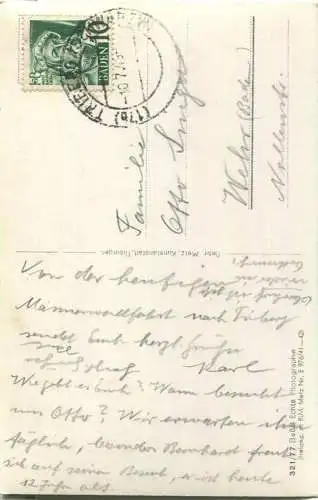 BADEN
10
TRIBERG
(17b)
Familie
Otto Singer
Wehr (Baden)
Gebr. Metz, Kunstanstalt, Tübingen
Von der heutigen
Männerwallfahrt nach Triberg
sendet Euch herzl. Grüße
Karl
Wie geht es Euch? Wann besucht
uns Otto? Wir erwarten ihn
täglich, besonders Bernhard freut
sich auf seinen Besuch, er ist heute
12 Jahre alt.
321/77 Echte Photographie